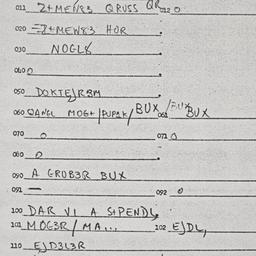 011 Z+MEN83 QRUSS QR 012 0
020 Z+MEW83 HOR
030 NOGL8
040 0
050 DOKTEJRSM
060 MOG+ /PUPSK/ BUX / BUX
061 BUX
070 0 071 0
080 0
090 A GROB3R BUX
091 — 092 0
100 DAR VI A S+PENDL
101 MOG3R / MA... 102 EJDL,
110 EJD3L3R